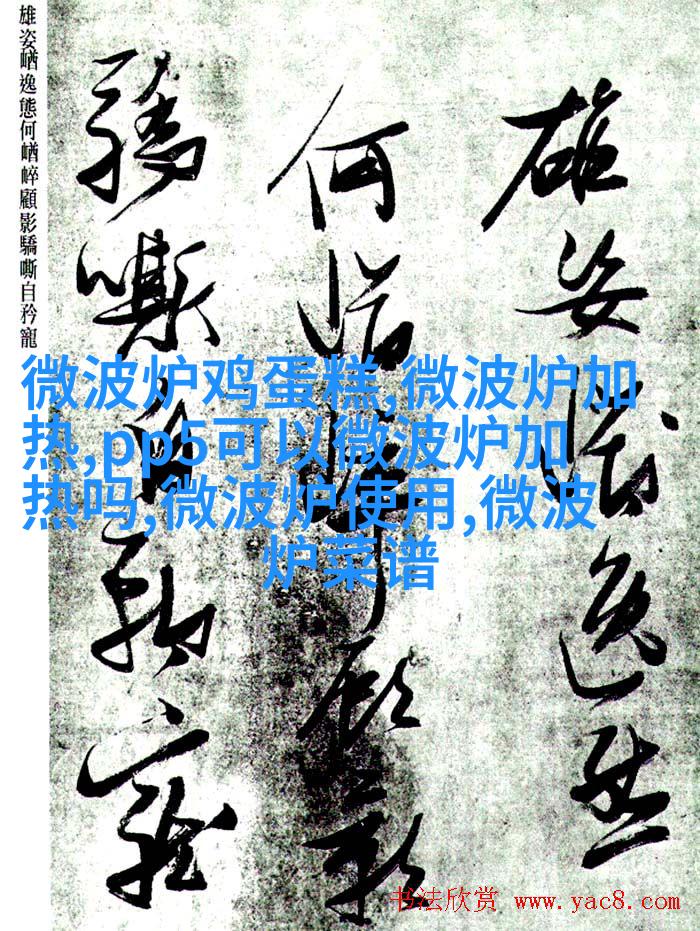 雄姿逸態
何崷崪顧影
驕嘶自矜寵
雄姿崷逸態何崷崪顧影驕嘶自矜寵
微波炉鸡蛋糕,微波炉加
热,pp5可以微波炉加
热吗,微波炉使用,微波
炉菜谱
书法欣赏 www.yac8.com